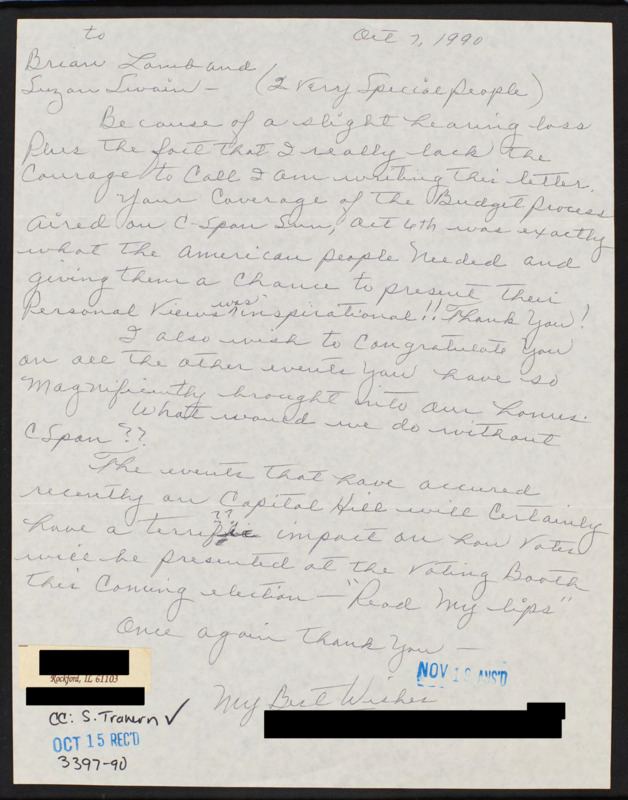 to
Oct 7, 1990
Brian Lamb and
Suzan Swain - (2 Very Special people)
Because of a slight hearing loss
Plus the fact that I really lack the
Courage to Call I am writing this letter.
Your Coverage of the Budget process
aired on C-Span Sun, Oct 6th was exactly
what the American people needed and
giving them a Chance to present their
Personal Views was inspirational!! Thank You!
I also wish to Congratulate You
on all the other events You have so
Magnificently brought into our homes.
What would we do without
C Span??
The events that have accured
recently on Capitol Hill will Certainly
??
have a terrific impact on how Votes
will be presented at the Voting Booth
this Coming election - "Read My Lips"
Once again Thank You -
My Best Wishes
NOV 19 ANS'D
Rockford, IL 61103
CC: S. Travern ✓
OCT 15 REC'D
3397-90